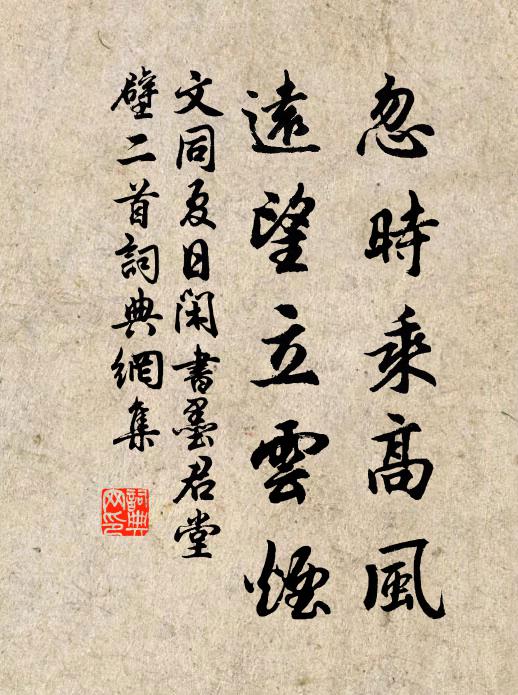 忽時乘高風
遠望立雲煙
文同夏日閑書墨君堂
壁二首詞典網集
詞典
网印